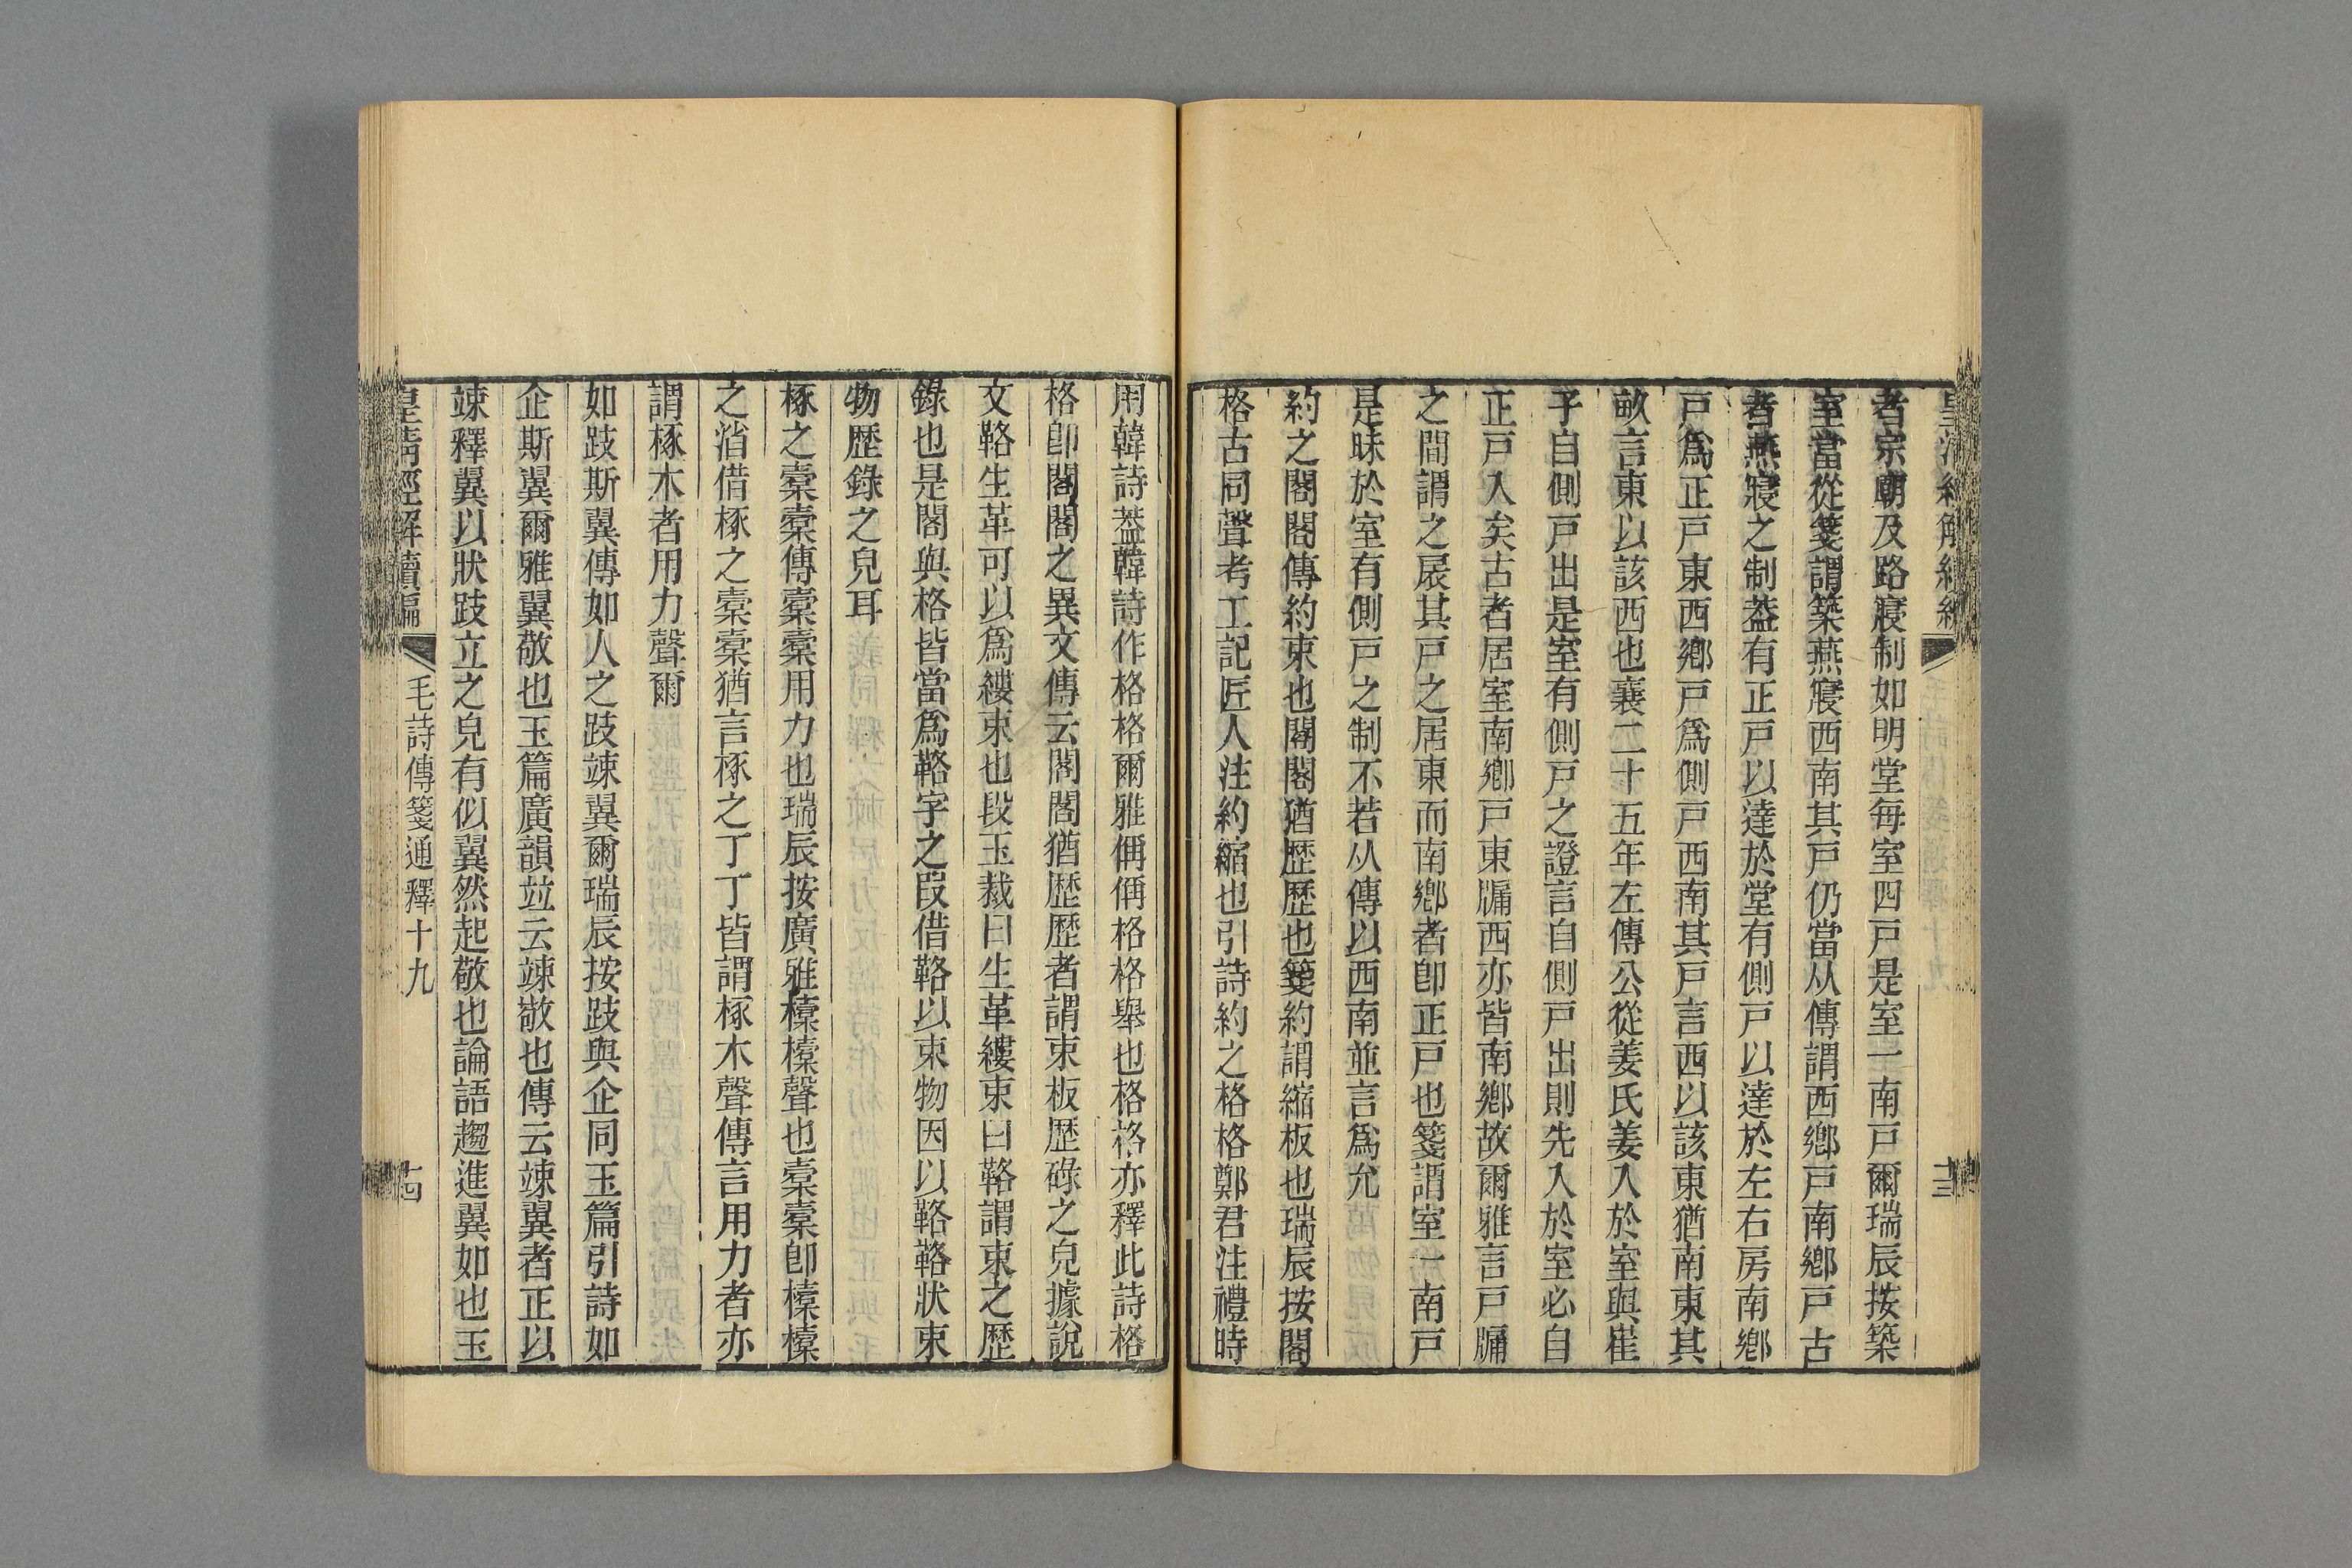 者宗廟及路寢制如明堂每室四戸是室一南戸爾瑞辰按築
室當從箋謂築燕寢西南其戸仍當从傳謂西鄉戸南鄉戸古
者燕寢之制葢有正戸以達於堂有側戸以達於左右房南鄉
戸爲正戸東西鄉戸爲側戸西南其戸言西以該東猶南東其
畝言東以該西也襄二十五年左傳公從姜氏姜入於室與崔
子自側戸出是室有側戸之證言自側戸出則先入於室必自
正戸入矣古者居室南鄉戸東牖西亦皆南鄉故爾雅言戸牖
之間謂之扆其戸之居東而南鄉者卽正戸也箋謂室一南戸
是昧於室有側戸之制不若从傳以西南並言爲允
約之閣閣傳約束也閣閣猶歷歷也箋約謂縮板也瑞辰按閣
格古同聲考工記匠人注約縮也引詩約之格格鄭君注禮時
用韓詩葢韓詩作格格爾雅偁偁格格舉也格格亦釋此詩格
格卽閣閣之異文傳云閣閣猶歷歷者謂束板歷碌之皃據說
文䩭生革可以爲縷束也段玉裁曰生革縷束曰䩭謂束之歷
錄也是閣與格皆當爲䩭字之叚借䩭以束物因以䩭䩭狀束
物歷錄之皃耳
椓之橐橐傳橐橐用力也瑞辰按廣雅㯱㯱聲也橐橐卽㯱㯱
之消借椓之橐橐猶言椓之丁丁皆謂椓木聲傳言用力者亦
謂椓木者用力聲爾
如跂斯翼傳如人之跂竦翼爾瑞辰按跂與企同玉篇引詩如
企斯翼爾雅翼敬也玉篇廣韻竝云竦敬也傳云竦翼者正以
竦釋翼以狀跂立之皃有似翼然起敬也論語趨進翼如也玉
皇清經解續編
毛詩傳箋通釋十九
十四